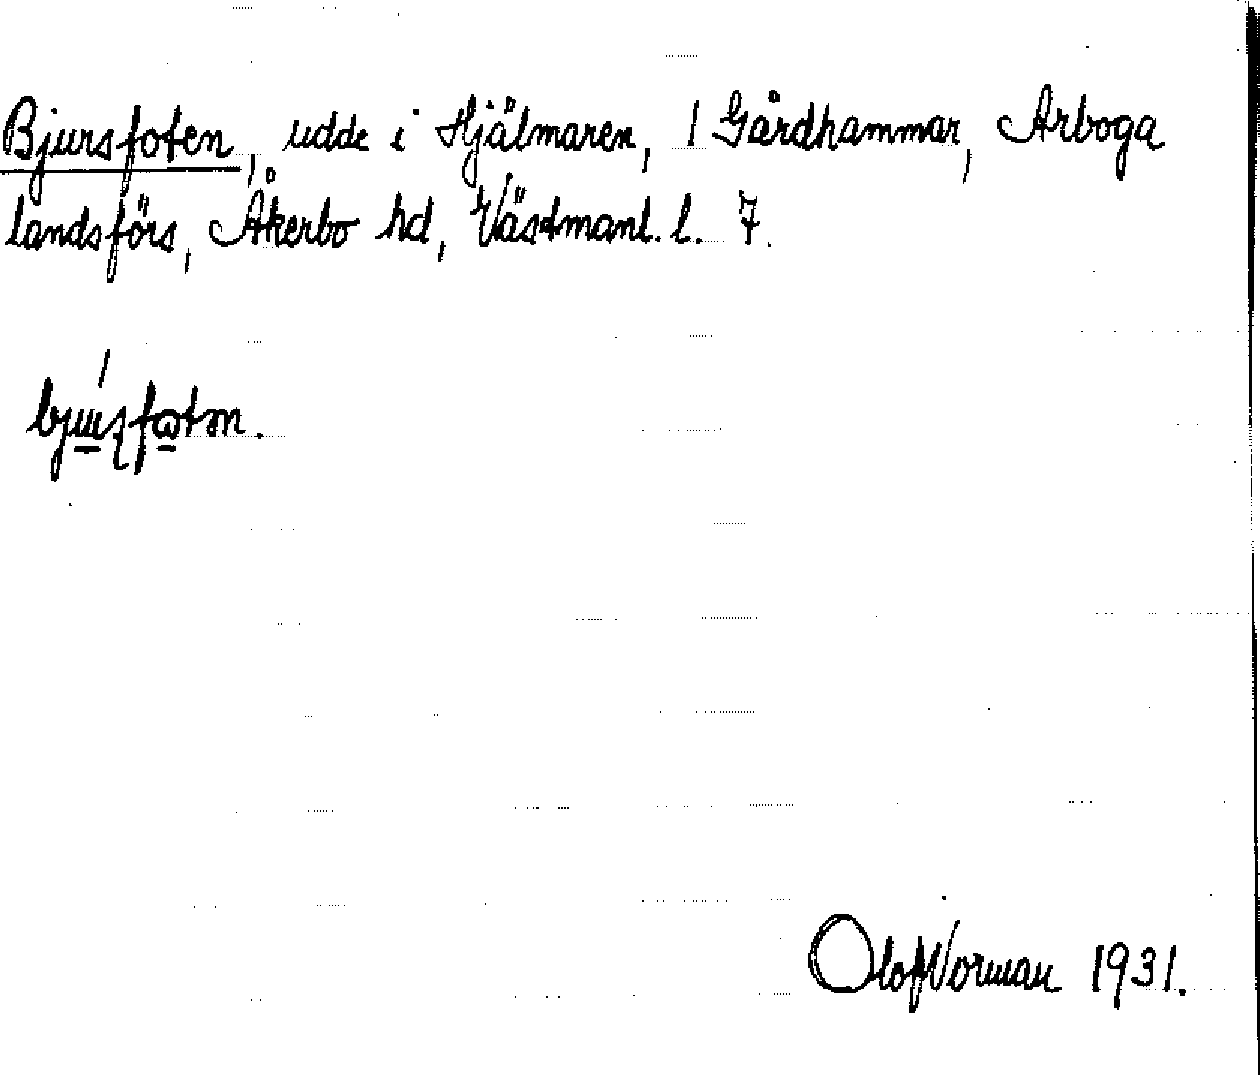 Bjursfoten, udde i Hjälmaren, / Gårdhammar, Arboga
landsförs, Åkerbo hd, Västmanl. l. 7.
Olof Norman 1931.